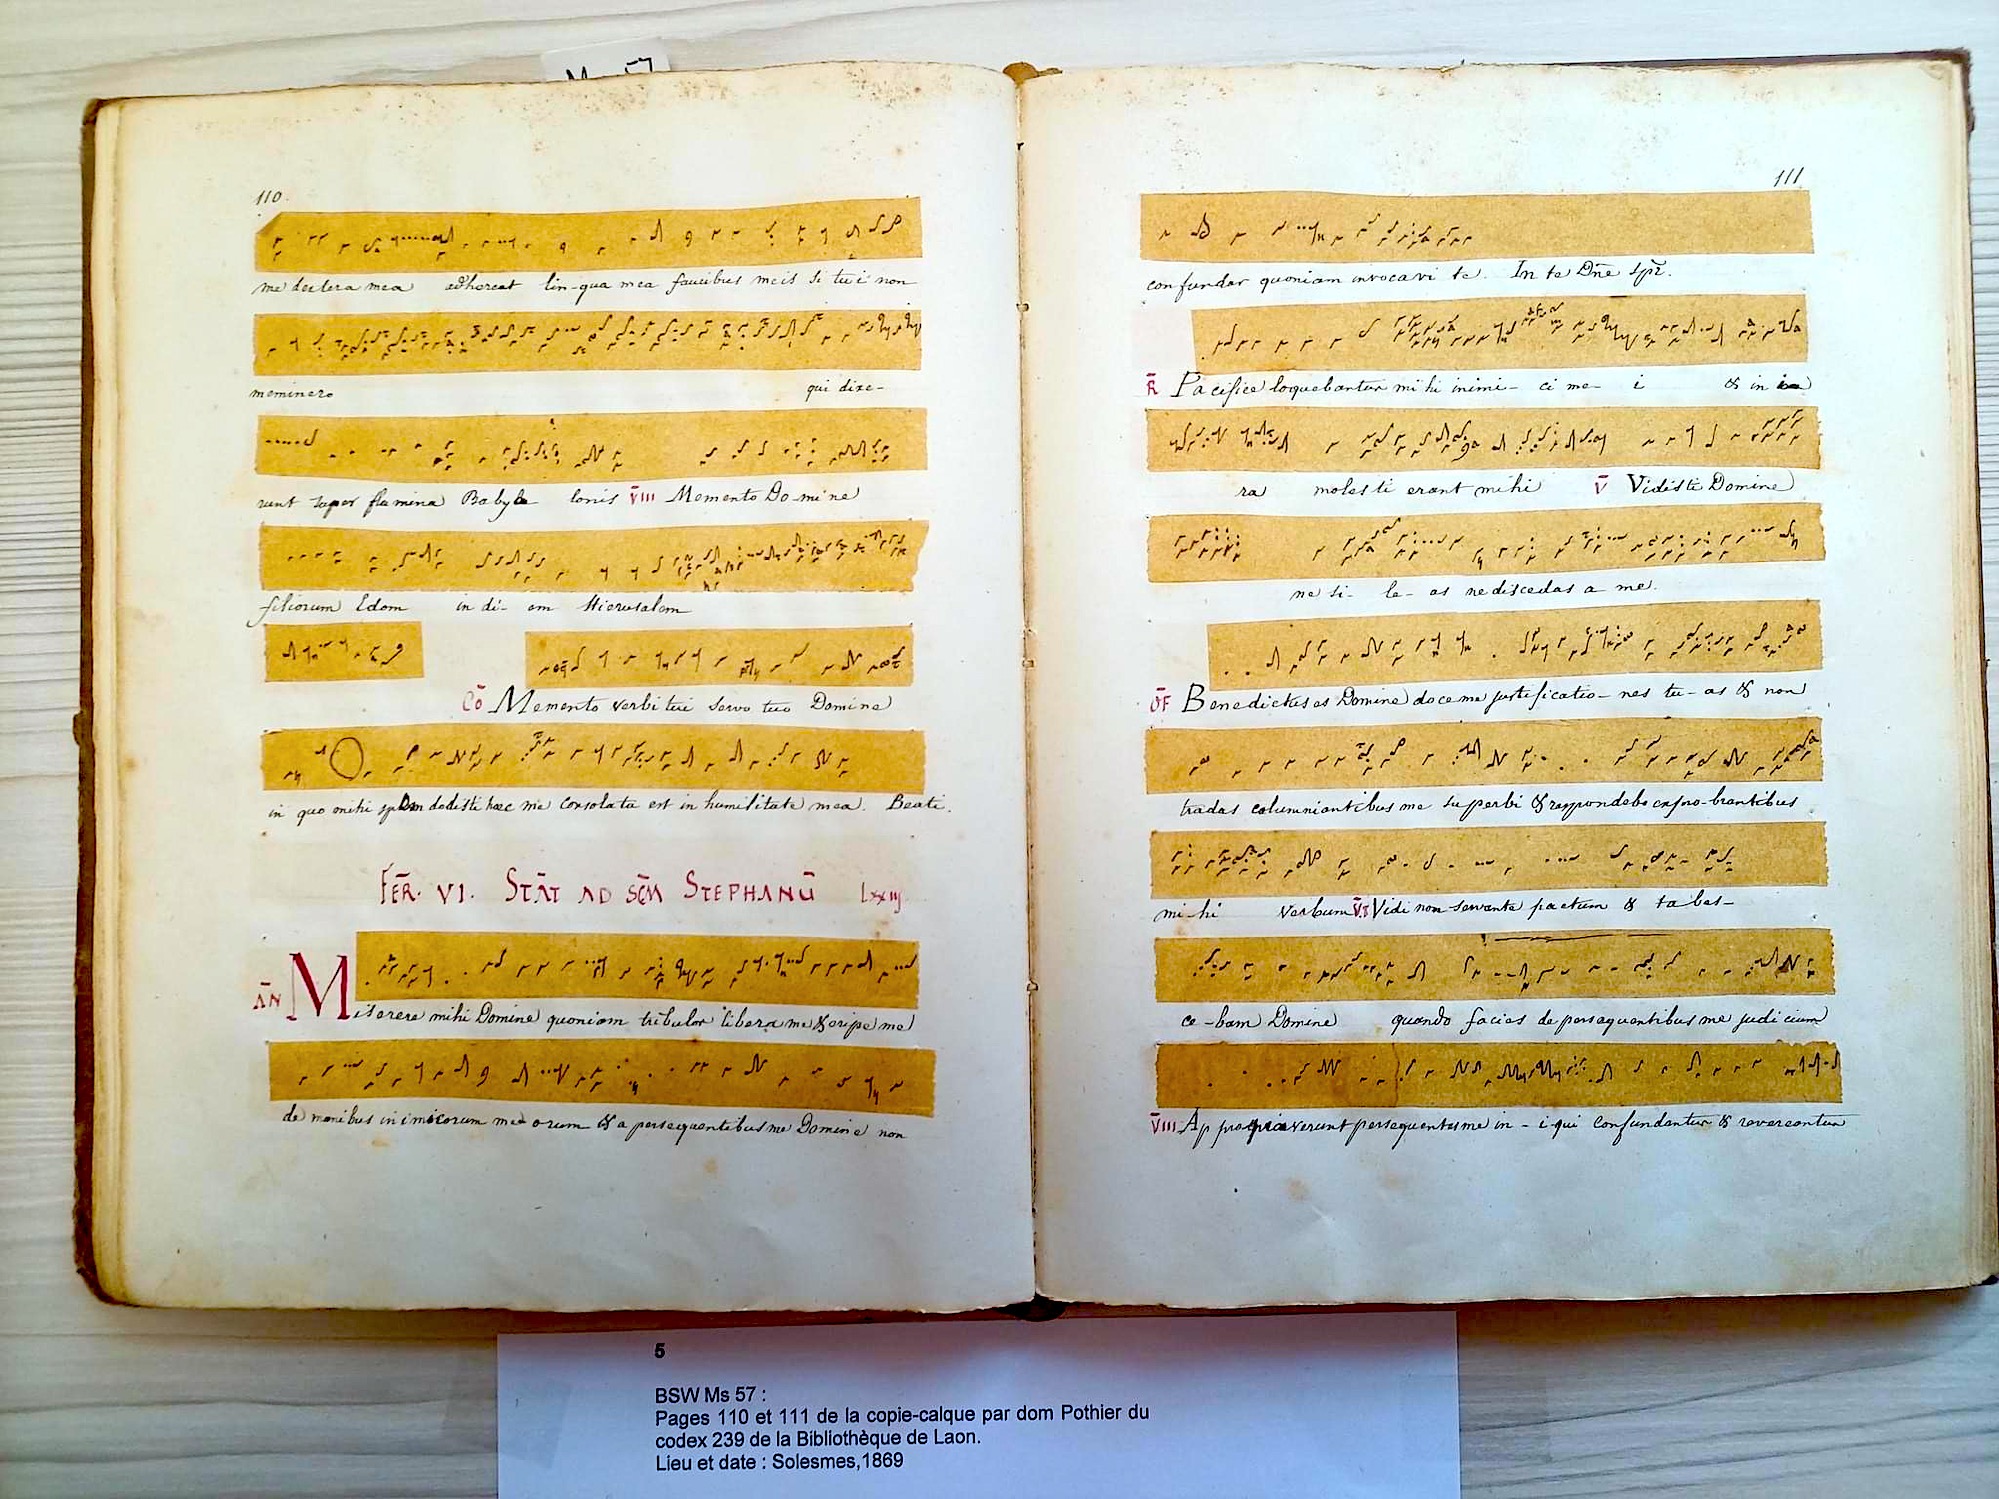 Ms 57
110
me dextera mea adhereat lin-gua mea faucibus meis si tui non
meminero qui dixe-
runt super flumina Baby lonis VIII Memento Do-mine
filiorum Edom in di- em Hierusalem
CŌ Memento verbi tui servo tuo Domine
in quo mihi spem dedisti haec me consolata est in humilitate mea. Beati.
FER̄. VI. STĀT AD SC̄M STEPHANŪ LXXIIJ
ĀN Miserere mihi Domine quoniam tribulor libera me & eripe me
de manibus inimicorum meorum & a persequentibus me Domine non
111
confundar quoniam invocavi te. In te Dn̄e sp̄r.
R̄ Pacifice loquebantur mihi inimi- ci me- i & in
ra molesti erant mihi V̄ Vidisti Domine
ne si- le- as ne discedas a me.
ŌF Benedictus es Domine doce me justificatio- nes tu- as & non
tradas calumniantibus me superbi & respondebo expro-brantibus
mi-hi verbum V̄. Vidi non servante pactum & tabes-
ce-bam Domine quando facies de persequentibus me judicium
V̄III Ap verunt persequentes me in- i-qui confundantur & revereantur
5
BSW Ms 57 :
Pages 110 et 111 de la copie-calque par dom Pothier du
codex 239 de la Bibliothèque de Laon.
Lieu et date : Solesmes,1869